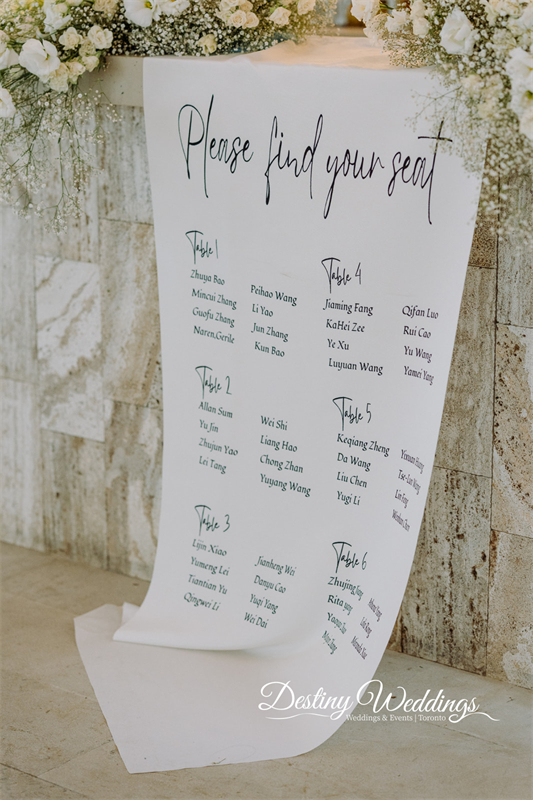 Please find your seat
Table 1
Zhuya Bao
Mincui Zhang
Guofu Zhang
Naren,Gerile
Peihao Wang
Li Yao
Jun Zhang
Kun Bao
Table 2
Allan Sum
Yu Jin
Zhujun Yao
Lei Tang
Wei Shi
Liang Hao
Chong Zhan
Yuyang Wang
Table 3
Lijin Xiao
Yumeng Lei
Tiantian Yu
Qingwei Li
Jianheng Wei
Danyu Cao
Yuqi Yang
Wei Dai
Table 4
Jiaming Fang
KaHei Zee
Ye Xu
Luyuan Wang
Qifan Luo
Rui Cao
Yu Wang
Yamei Yang
Table 5
Keqiang Zheng
Da Wang
Liu Chen
Yugi Li
Table 6
Rita
Destiny Weddings
Weddings & Events | Toronto